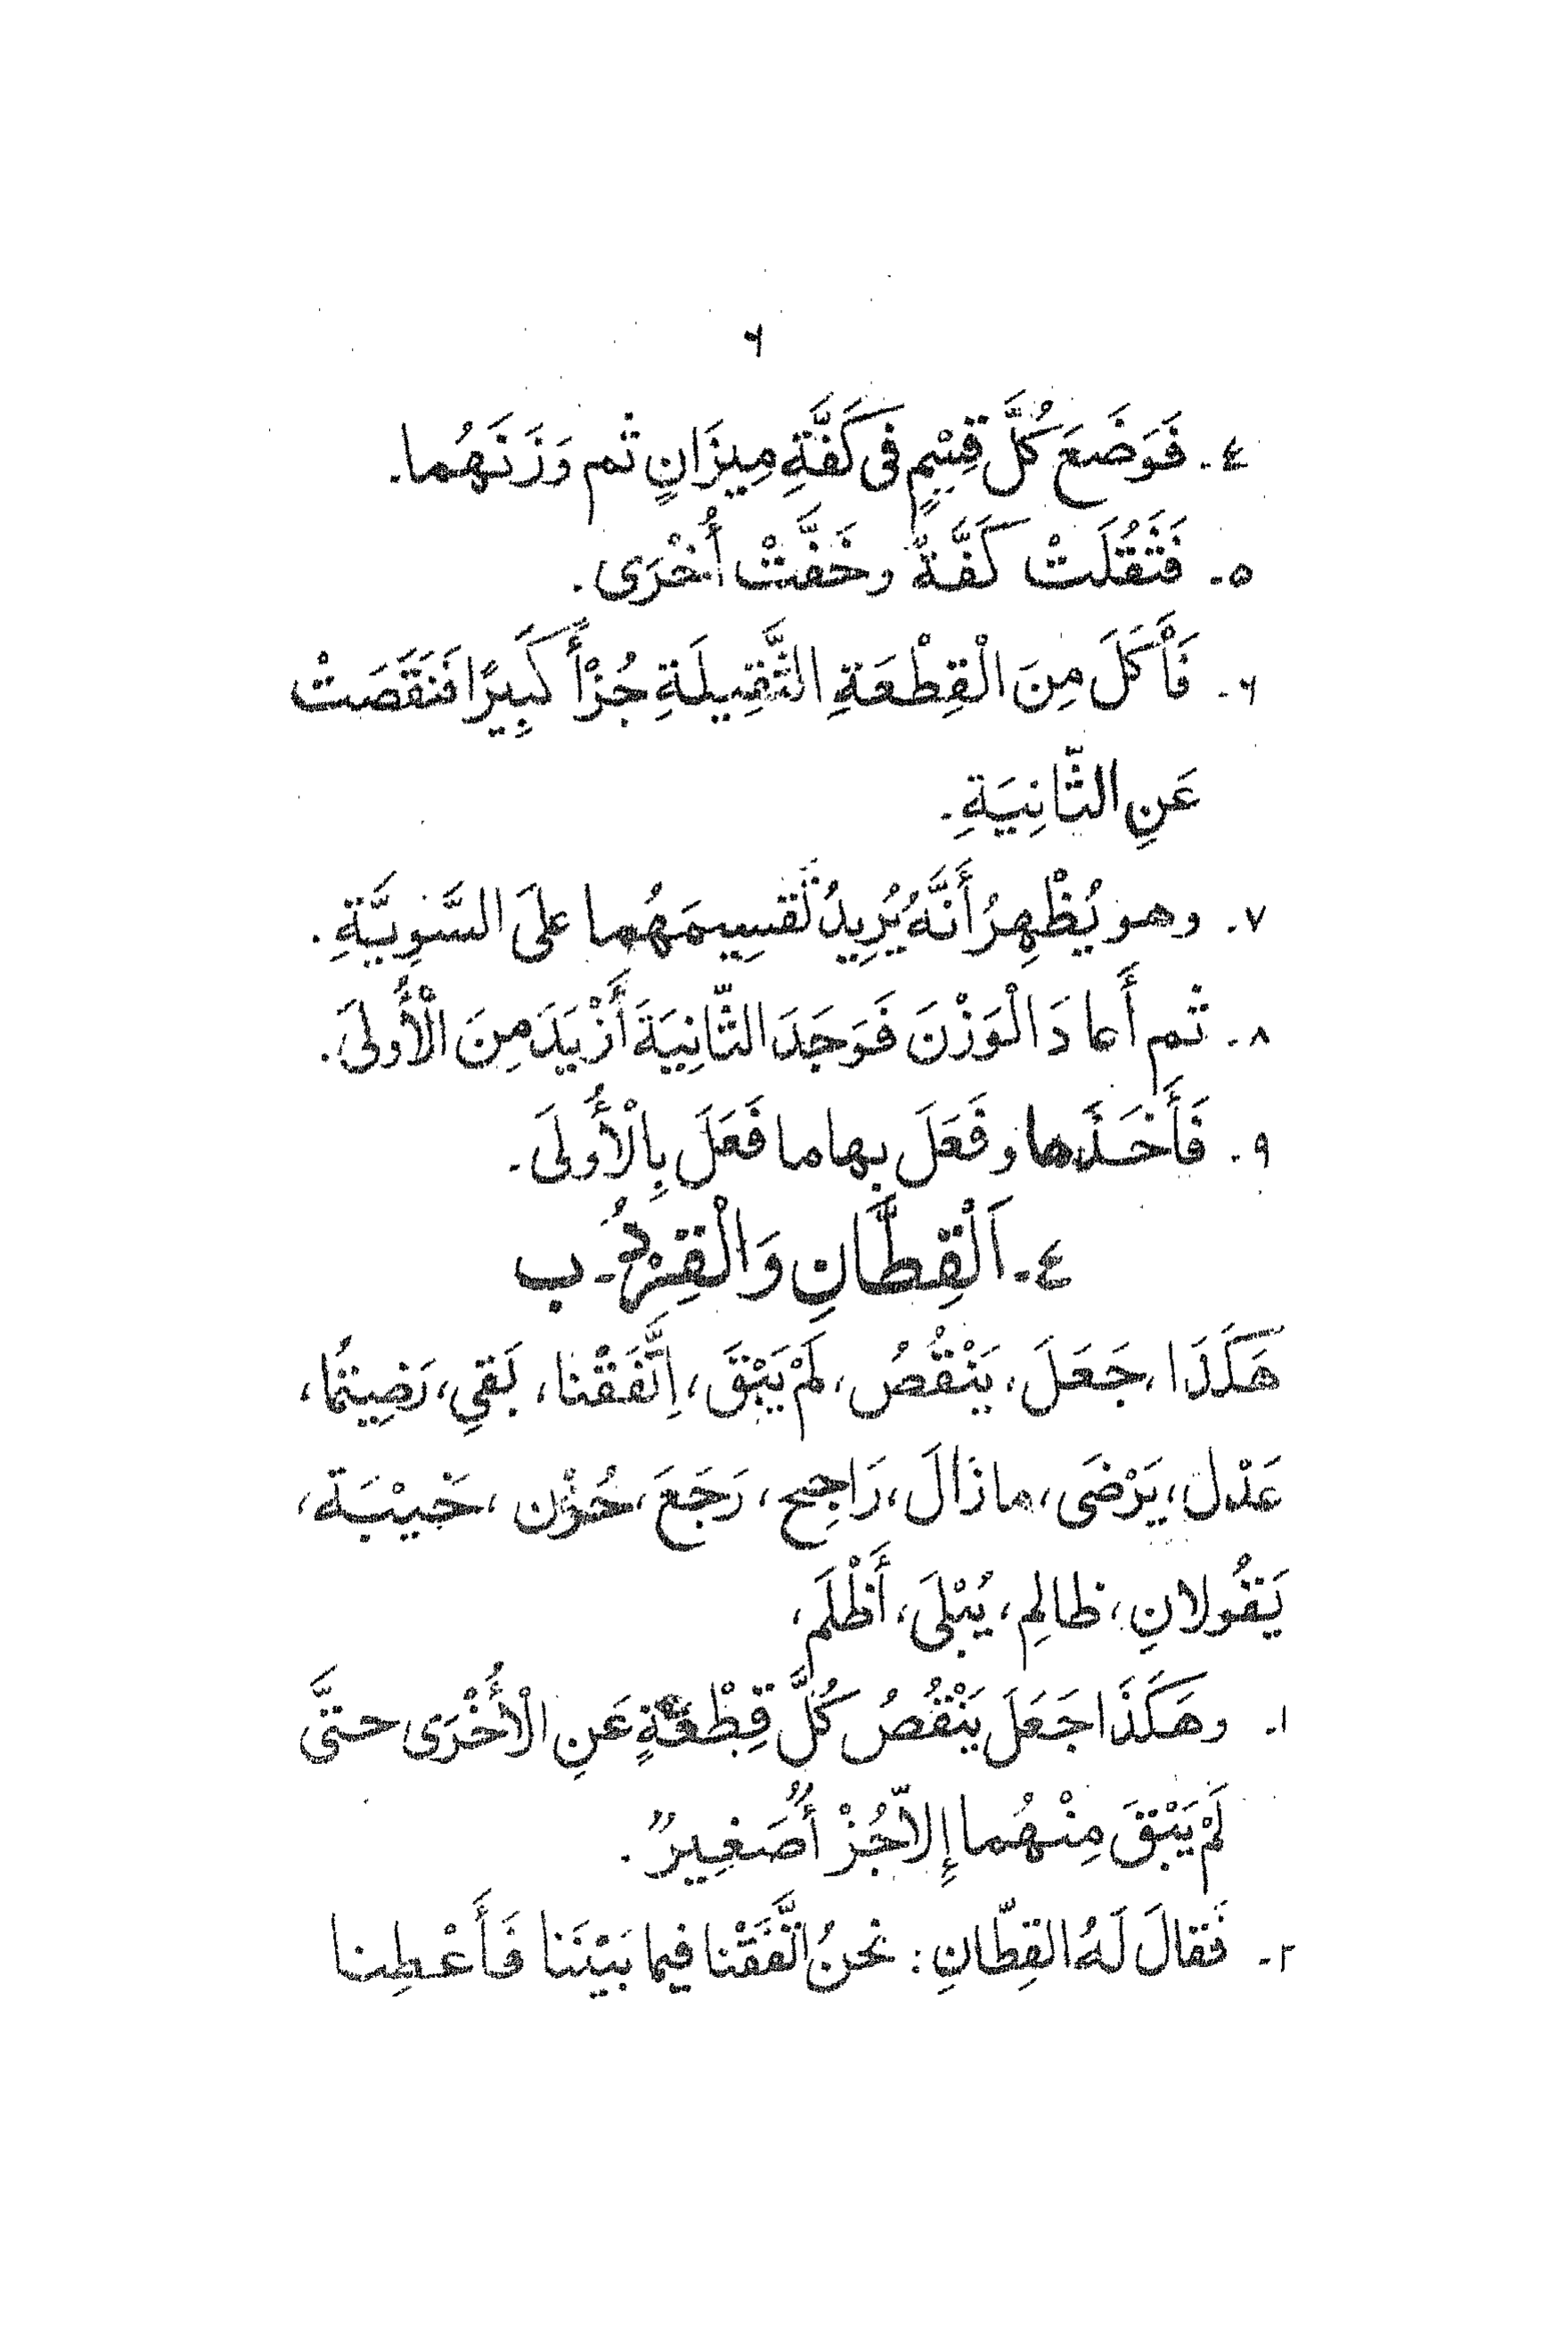 ٦
٤- فَوَضَعَ كُلَّ قِسْمٍ فى كَفَّةِ مِيزَانٍ ثم وَزَنَهُما.
٥- فَثَقُلَتْ كَفَّةٌ وخَفَّتْ أُخْرَى.
٦- فَأَكَلَ مِنَ الْقِطْعَةِ الثَّقِيلَةِ جُزْأً كَبِيرًا فَنَقَصَتْ
عَنِ الثّانِيَةِ.
٧- وهو يُظْهِرُ أَنَّهُ يُرِيدُ تَقسِيمَهُما علىَ السَّوِيَّةِ.
٨- ثم أَعادَ الْوَزْنَ فَوَجَدَ الثّانِيَةَ أَزْيَدَ مِنَ الْأُولىَ.
٩- فَأَخَذَها وفَعَلَ بها ما فَعَلَ بِالْأُولَى.
٤- اَلْقِطَّانِ وَالْقِرْدُ- ب
هَكَذَا، جَعَلَ، يَنْقُصُ، لَمْ يَبْقَ، اِتَّفَقْنا، بَقِي، رَضِيتُما،
عَدْل، يَرْضَى، مازَالَ، رَاجِح، رَجَعَ، حُزْن، خَيْبَة،
يَقُولانِ، ظالِم، يُبْلَى، أَظْلَم،
١- وهَكَذَا جَعَلَ يَنْقُصُ كُلَّ قِطْعَةٍ عَنِ الْأُخْرَى حتىَّ
لَمْ يَبْقَ مِنْهُما إِلاّ جُزْأٌ صَغِيرٌ.
٢- فَقالَ لَهُ القِطّانِ: نحنُ اتَّفَقْنا فيما بَيْنَنا فَأَعْطِنا